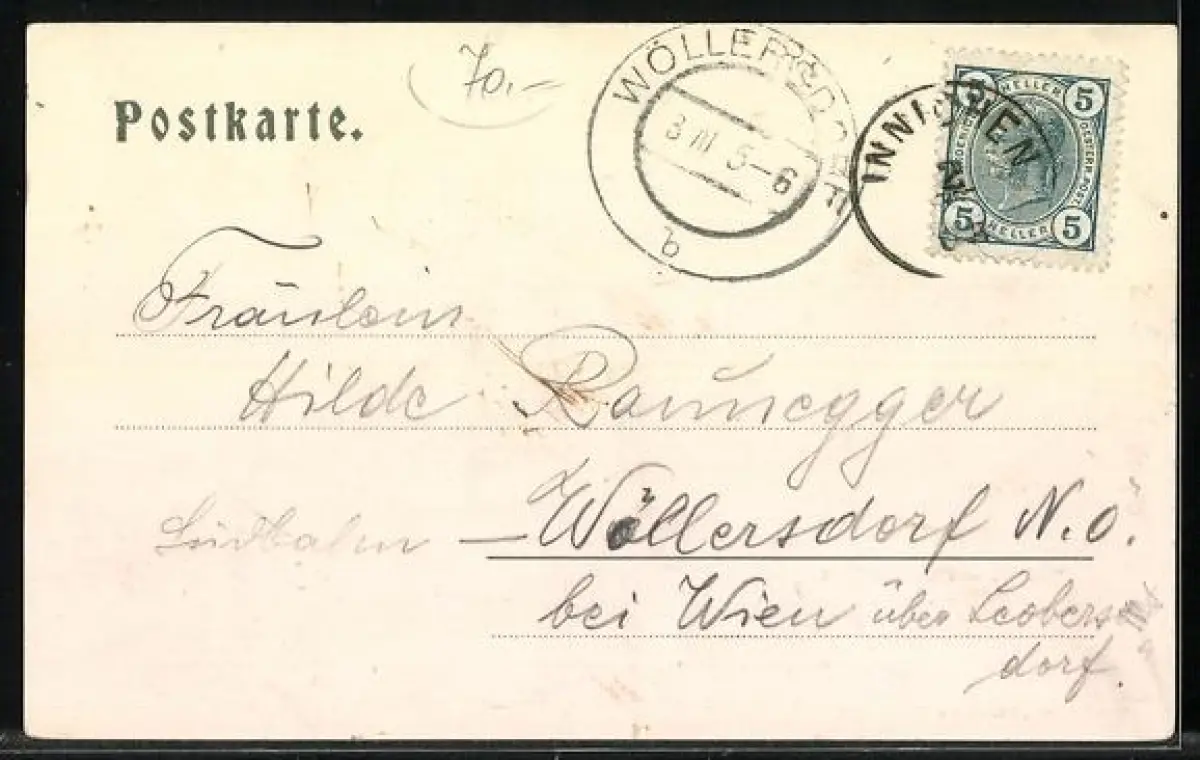 70.-
Postkarte.
WÖLLERSDORF
3 III 5-6
b
INNICHEN
5 HELLER 5
5 HELLER 5
Fräulein
Hilde Raunegger
Südbahn – Wöllersdorf N.Ö.
bei Wien über Leobers
dorf.